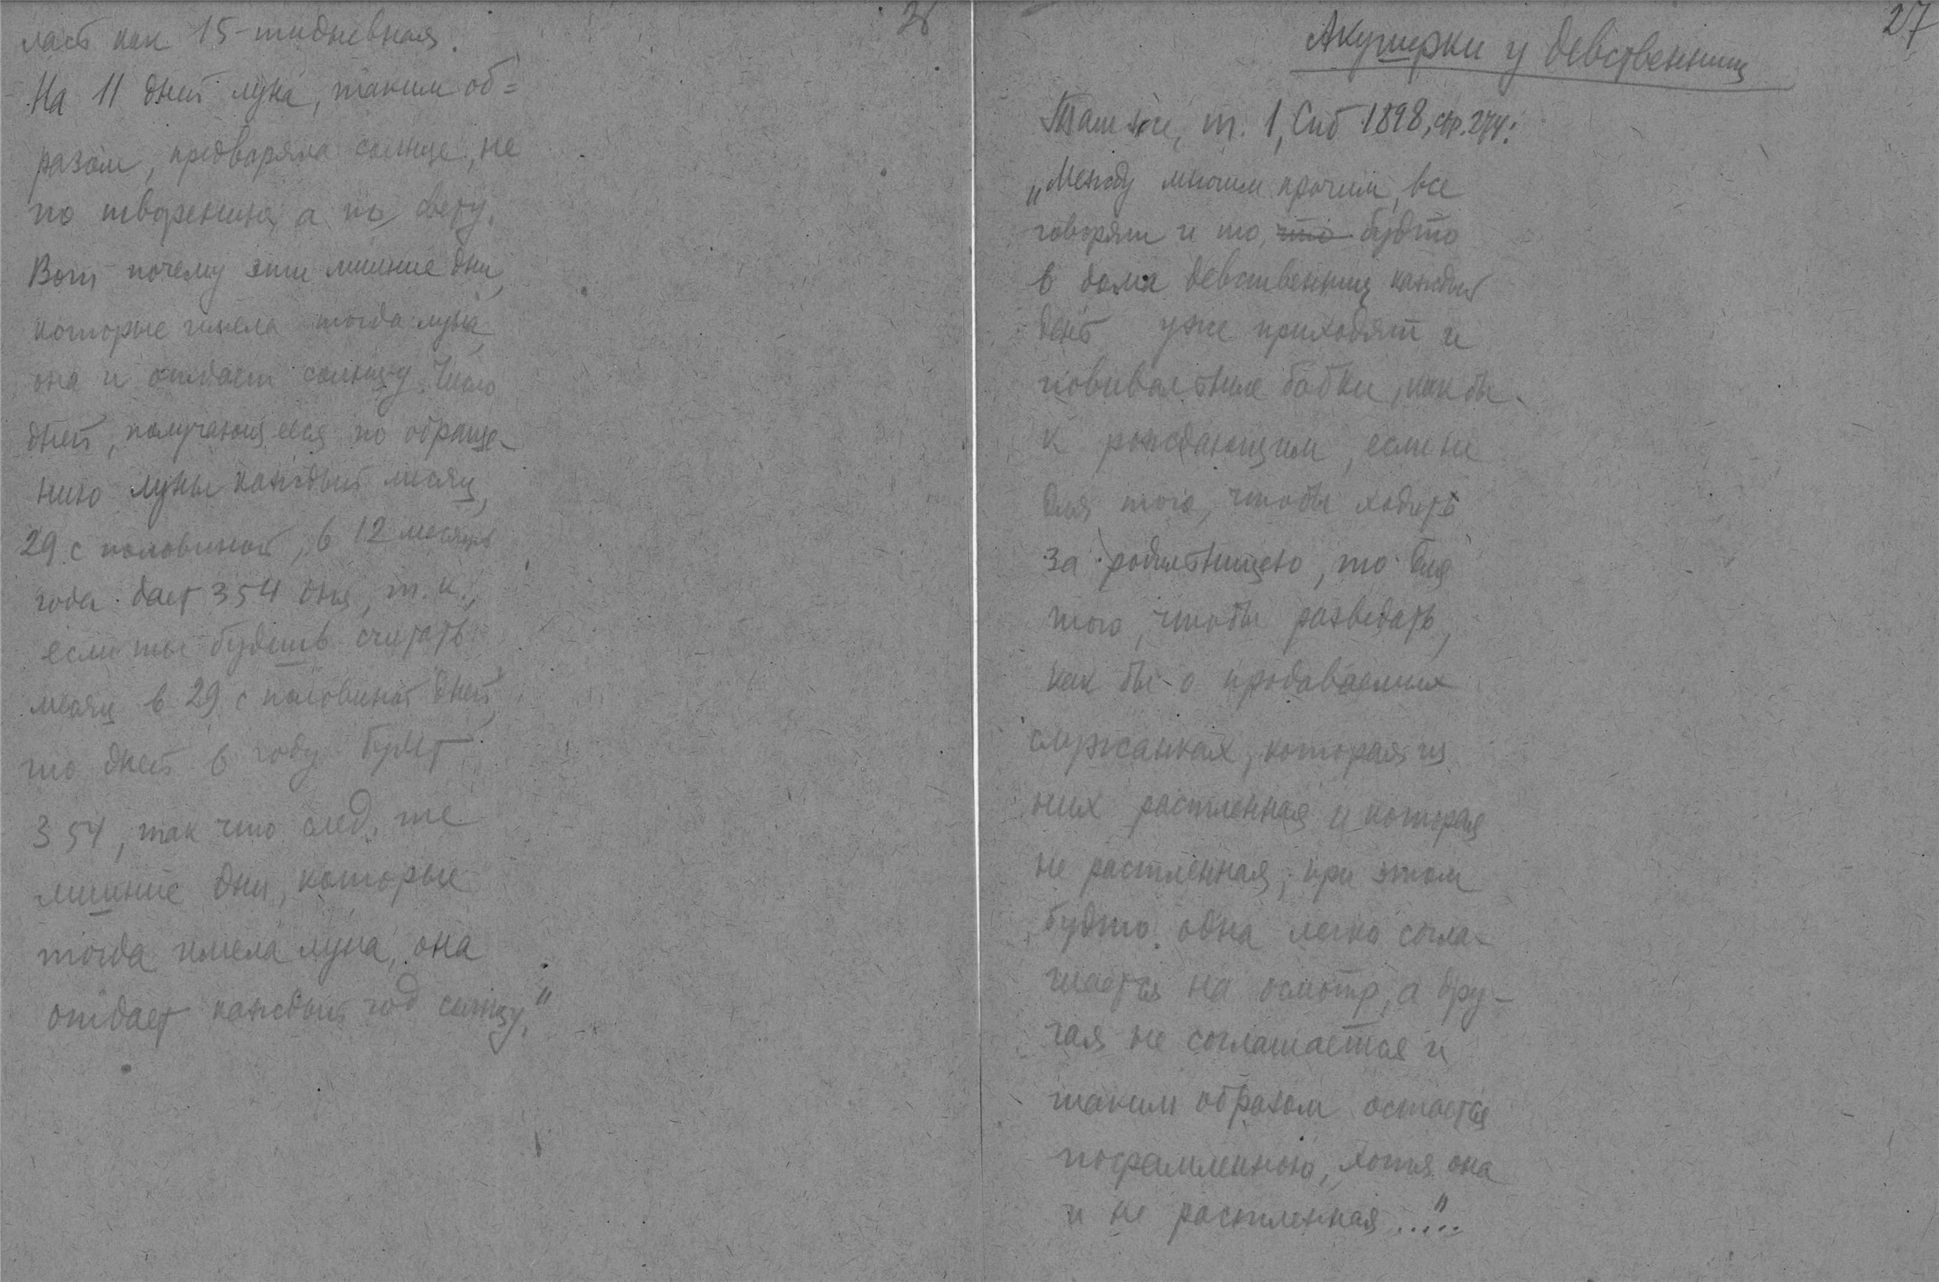 26
лась как 15-тидневная.
На 11 дней луна, таким об=
разом, предваряла солнце, не
по творению, а по свету.
Вот почему эти лишние дни,
которые имела тогда луна,
она и отдает солнцу. Число
дней, получающееся по обраще-
нию луны каждый месяц,
29 с половиной, в 12 месяцев
года дает 354 дня, т.к.,
если ты будешь считать
месяц в 29 с половиной дней,
то дней в году будет
354, так что след. те
лишние дни, которые
тогда имела луна, она
отдает каждый год солнцу."
27
Акушерки у девственниц
Там же, т. 1, Спб 1898, стр. 274:
„Между многим прочим, все
говорят и то, что будто
в дома девственниц каждый
день уже приходят и
повивальные бабки, как бы
к рождающим, если не
для того, чтобы ходить
за родильницею, то для
того, чтобы разведать,
как бы о продаваемых
служанках, которая из
них растленная и которая
не растленная; при этом
будто одна легко согла-
шается на осмотр, а дру-
гая не соглашается и
таким образом остается
посрамленною, хотя она
и не растленная..."..